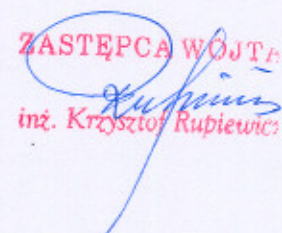 ZASTĘPCA WÓJTA
inż. Krzysztof Rupiewicz